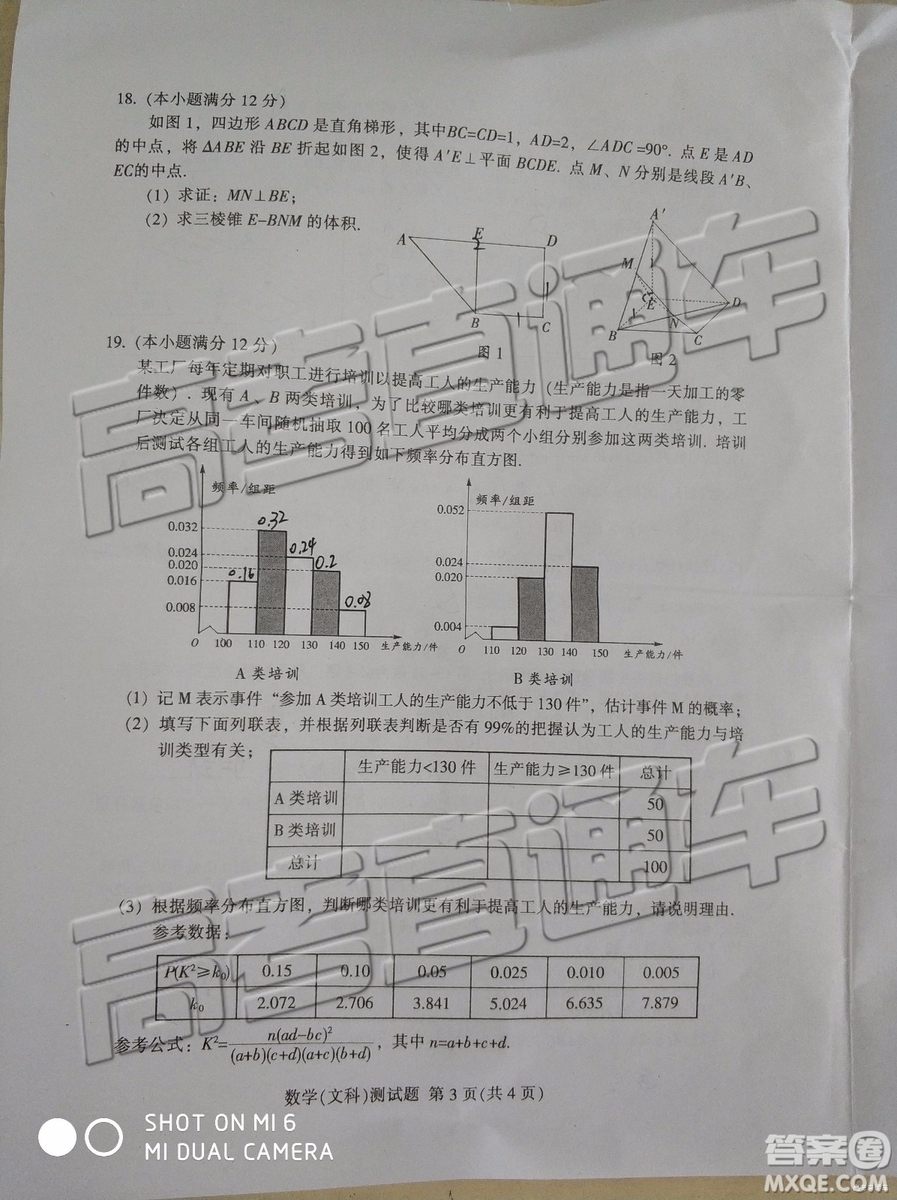 18. (本小题满分 12 分)
如图 1，四边形 ABCD 是直角梯形，其中BC=CD=1，AD=2，∠ADC =90°. 点 E 是 AD
的中点，将 ΔABE 沿 BE 折起如图 2，使得 A′E⊥平面 BCDE. 点 M、N 分别是线段 A′B、
EC的中点.
(1) 求证：MN⊥BE；
(2) 求三棱锥 E-BNM 的体积.
A E D
2
1
B 1 C
图 1
A′
M
E
D
B
N
C
1
1
图 2
19. (本小题满分 12 分)
某工厂每年定期对职工进行培训以提高工人的生产能力（生产能力是指一天加工的零
件数）. 现有 A、B 两类培训，为了比较哪类培训更有利于提高工人的生产能力，工
厂决定从同一车间随机抽取 100 名工人平均分成两个小组分别参加这两类培训. 培训
后测试各组工人的生产能力得到如下频率分布直方图.
频率/组距
0.032
0.024
0.020
0.016
0.008
0.16 0.32 0.24 0.2 0.08
O 100 110 120 130 140 150 生产能力/件
A 类培训
频率/组距
0.052
0.024
0.020
0.004
O 110 120 130 140 150 生产能力/件
B 类培训
(1) 记 M 表示事件“参加 A 类培训工人的生产能力不低于 130 件”，估计事件 M 的概率；
(2) 填写下面列联表，并根据列联表判断是否有 99%的把握认为工人的生产能力与培
训类型有关；
生产能力<130 件 生产能力≥130 件 总计
A 类培训 50
B 类培训 50
总计 100
(3) 根据频率分布直方图，判断哪类培训更有利于提高工人的生产能力，请说明理由.
参考数据：
P(K²≥k₀) 0.15 0.10 0.05 0.025 0.010 0.005
k₀ 2.072 2.706 3.841 5.024 6.635 7.879
参考公式：K²=n(ad-bc)²/(a+b)(c+d)(a+c)(b+d)，其中 n=a+b+c+d.
数学(文科)测试题 第 3 页(共 4 页)
高考直通车
高考直通车
SHOT ON MI 6
MI DUAL CAMERA
答案圈
MXQE.COM